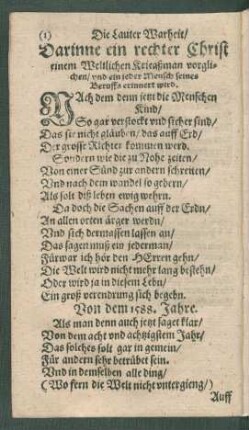 (1)
Die Lauter Warheit/
Darinne ein rechter Christ
einem Weltlichen Kriegßman vergli-
chen/ vnd ein jeder Mensch seines
Beruffs erinnert wird.
NAch dem denn jetzt die Menschen
Kind/
So gar verstockt vnd sicher sind/
Das sie nicht gläuben/ das auff Erd/
Der grosse Richter kommen werd.
Sondern wie die zu Nohe zeiten/
Von einer Sünd zur andern schreiten/
Vnd nach dem wandel so gebern/
Als solt diß leben ewig wehrn.
Da doch die Sachen auff der Erdn/
An allen orten ärger werdn/
Vnd sich dermassen lassen an/
Das sagen muß ein jederman/
Fürwar ich hör den HErren gehn/
Die Welt wird nicht mehr lang bestehn/
Oder wird ja in diesem Lebn/
Ein groß verendrung sich begebn.
Von dem 1588. Jahre.
Als man denn auch jetzt saget klar/
Von dem acht vnd achtzigstem Jahr/
Das solches solt gar in gemein/
Für andern sehr betrübet sein.
Vnd in demselben alle ding/
(Wo fern die Welt nicht vntergieng/)
Auff